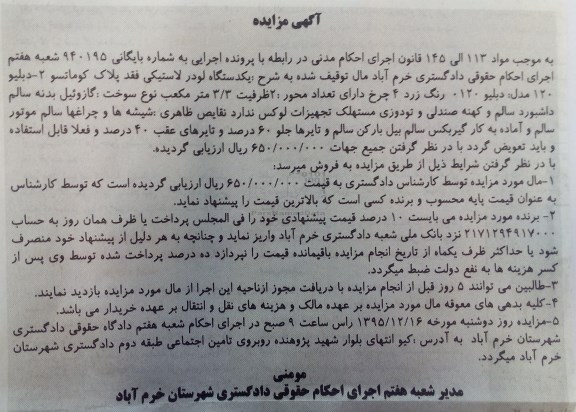 آگهی مزایده
به موجب مواد ۱۱۳ الی ۱۴۵ قانون اجرای احکام مدنی در رابطه با پرونده اجرایی به شماره بایگانی ۹۴۰۱۹۵ شعبه هفتم
اجرای احکام حقوقی دادگستری خرم آباد مال توقیف شده به شرح :یکدستگاه لودر لاستیکی فقد پلاک کوماتسو ۲-دبلیو
۱۲۰ مدل: دبلیو ۰۱۲۰ رنگ زرد ۴ چرخ دارای تعداد محور :۲ظرفیت ۳/۳ متر مکعب نوع سوخت :گازوئیل بدنه سالم
داشبورد سالم و کهنه صندلی و تودوزی مستهلک تجهیزات لوکس ندارد نقایص ظاهری :شیشه ها و چراغها سالم موتور
سالم و آماده به کار گیربکس سالم بیل بارکن سالم و تایرها جلو ۶۰ درصد و تایرهای عقب ۴۰ درصد و فعلا قابل استفاده
و باید تعویض گردد با در نظر گرفتن جمیع جهات ۶۵۰/۰۰۰/۰۰۰ ریال ارزیابی گردیده.
با در نظر گرفتن شرایط ذیل از طریق مزایده به فروش میرسد:
۱-مال مورد مزایده توسط کارشناس دادگستری به قیمت ۶۵۰/۰۰۰/۰۰۰ ریال ارزیابی گردیده است که توسط کارشناس
به عنوان قیمت پایه محسوب و برنده کسی است که بالاترین قیمت را پیشنهاد نماید.
۲- برنده مورد مزایده می بایست ۱۰ درصد قیمت پیشنهادی خود را فی المجلس پرداخت یا ظرف همان روز به حساب
۲۱۷۱۲۹۴۹۱۷۰۰۰ نزد بانک ملی شعبه دادگستری خرم آباد واریز نماید و چنانچه به هر دلیل از پیشنهاد خود منصرف
شود یا حداکثر ظرف یکماه از تاریخ انجام مزایده باقیمانده قیمت را نپردازد ده درصد پرداخت شده توسط وی پس از
کسر هزینه ها به نفع دولت ضبط میگردد.
۳-طالبین می توانند ۵ روز قبل از انجام مزایده با دریافت مجوز ازناحیه این اجرا از مال مورد مزایده بازدید نمایند.
۴-کلیه بدهی های معوقه مال مورد مزایده بر عهده مالک و هزینه های نقل و انتقال بر عهده خریدار می باشد.
۵-مزایده روز دوشنبه مورخه ۱۳۹۵/۱۲/۱۶ راس ساعت ۹ صبح در اجرای احکام شعبه هفتم دادگاه حقوقی دادگستری
شهرستان خرم آباد به آدرس :کیو انتهای بلوار شهید پژوهنده روبروی تامین اجتماعی طبقه دوم دادگستری شهرستان
خرم آباد میگردد.
مومنی
مدیر شعبه هفتم اجرای احکام حقوقی دادگستری شهرستان خرم آباد